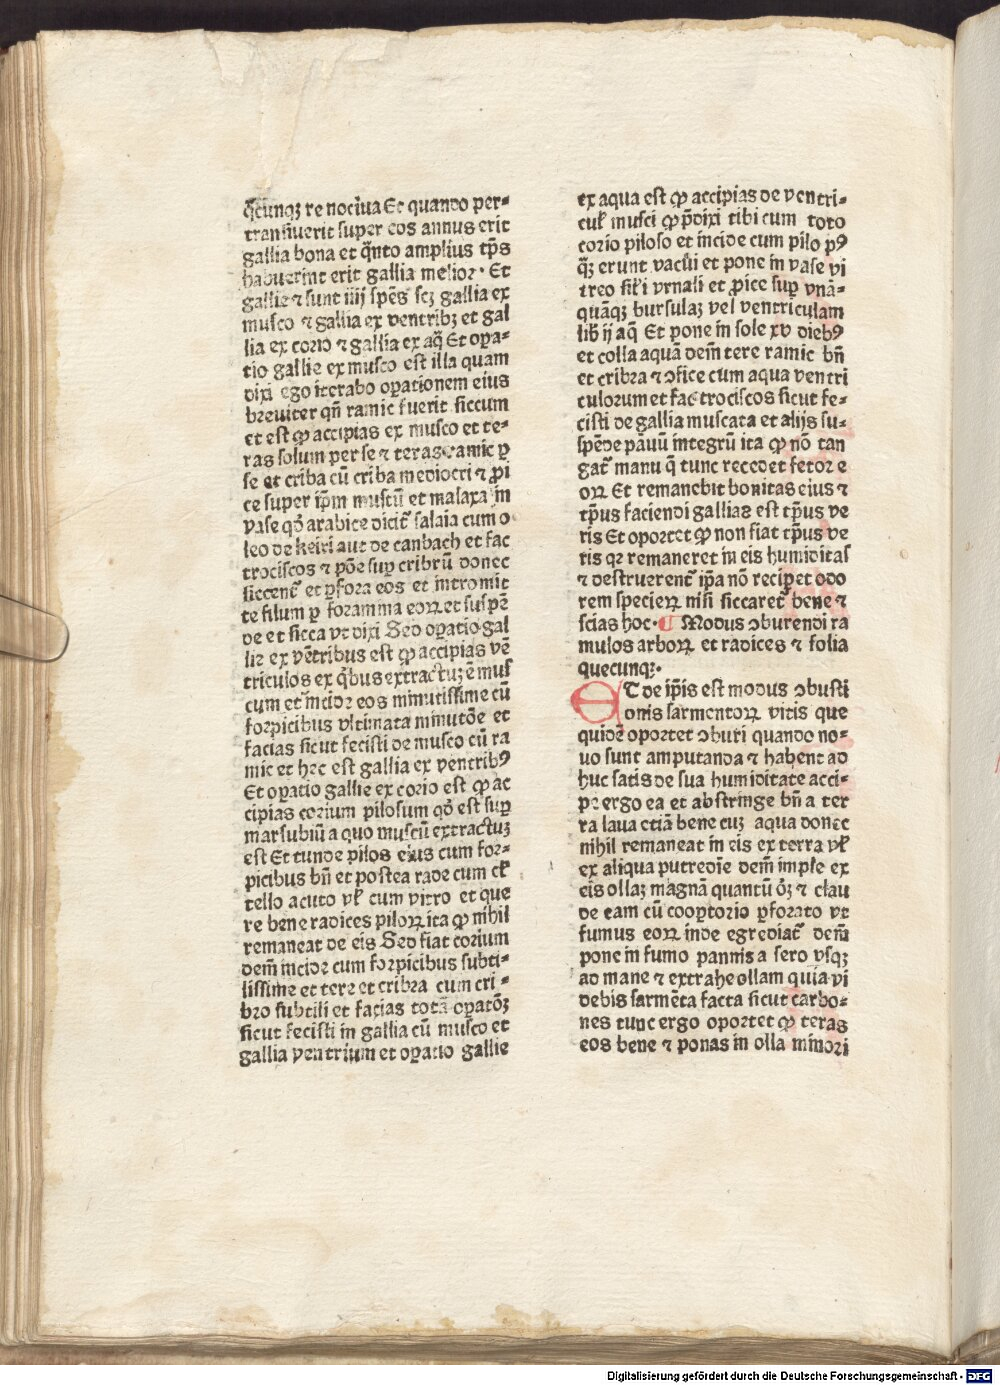 q̄cunqꝫ re nociua Et quando per⸗
transiuerit super eos annus erit
gallia bona et q̄nto amplius tp̄s
habuerint erit gallia melior· Et
gallie ⁊ sunt iiij spēs scꝫ gallia ex
musco ⁊ gallia ex ventribꝫ et gal
lia ex corio ⁊ gallia ex aq̄ Et oꝑa⸗
tio gallie ex musco est illa quam
dixi ego iterabo oꝑationem eius
breuiter qn̄ ramic fuerit siccum
et est ꝙ accipias ex musco et te⸗
ras solum per se ⁊ teras ramic ꝑ
se et criba cū criba mediocri ⁊ ꝓi
ce super ip̄m muscū et malaxa in
vase qd̄ arabice dicit̄ salaia cum o
leo de keiri aut de canbach et fac
trociscos ⁊ pōe suꝑ cribrū donec
siccent̄ et ꝑfora eos et intromit
te filum ꝑ foramina eoꝝ et suspē
de et sicca vt dixi Sed oꝑatio gal
lie ex vētribus est ꝙ accipias vē
triculos ex q̇bus extractuꝫ ē mus
cum et incide eos minutissime cū
forpicibus vltimata minutōe et
facias sicut fecisti de musco cū ra
mic et hec est gallia ex ventribꝰ
Et oꝑatio gallie ex corio est ꝙ ac
cipias corium pilosum qd̄ est suꝑ
marsubiū a quo muscū extractuꝫ
est Et tunde pilos eius cum for⸗
picibus bn̄ et postea rade cum cĺ
tello acuto vĺ cum vitro et que
re bene radices piloꝝ ita ꝙ nihil
remaneat de eis Sed fiat corium
dem̄ incide cum forpicibus subti⸗
lissime et tere et cribra cum cri⸗
bro subtili et facias totā oꝑatōꝫ
sicut fecisti in gallia cū musco et
gallia ventrium et oꝑatio gallie
ex aqua est ꝙ accipias de ventri⸗
culĺ musci ꝙ p̄dixi tibi cum toto
corio piloso et incide cum pilo pꝰ
q̄ꝫ erunt vacui et pone in vase vi
treo sil̄i vrnali et ꝓice suꝑ vnā⸗
quāqꝫ bursulaꝫ vel ventriculam
lib̄ ij aq̄ Et pone in sole xv diebꝰ
et colla aquā dem̄ tere ramic bn̄
et cribra ⁊ ↄfice cum aqua ventri
culorum et fac trociscos sicut fe⸗
cisti de gallia muscata et alijs su⸗
spēde pāuū integrū ita ꝙ nō tan
gat̄ manu q̄ tunc recedet fetor e
oꝝ Et remanebit bonitas eius ⁊
tp̄us faciendi gallias est tp̄us ve
ris Et oportet ꝙ non fiat tp̄us ve
ris qꝛ remaneret in eis humiditas
⁊ destruerent̄ ip̄a nō reciꝑet odo
rem specieꝝ nisi siccaret̄ bene ⁊
scias hoc· ¶ Modus ↄburendi ra
mulos arboꝝ et radices ⁊ folia
quecunqꝫ·
ET de ip̄is est modus ↄbusti
onis sarmentoꝝ vitis que
quidē oportet ↄburi quando no⸗
uo sunt amputanda ⁊ habent ad
huc satis de sua humiditate acci⸗
pe ergo ea et abstringe bn̄ a ter
ra laua etiā bene cuꝫ aqua donec
nihil remaneat in eis ex terra vĺ
ex aliqua putredīe dem̄ imple ex
eis ollaꝫ magnā quantū oꝫ ⁊ clau
de eam cū cooꝑtorio ꝑforato vt
fumus eoꝝ inde egrediat̄ dem̄
pone in furno pannis a sero vsqꝫ
ad mane ⁊ extrahe ollam quia vi
debis sarmēta facta sicut carbo⸗
nes tunc ergo oportet ꝙ teras
eos bene ⁊ ponas in olla minori
Digitalisierung gefördert durch die Deutsche Forschungsgemeinschaft - DFG